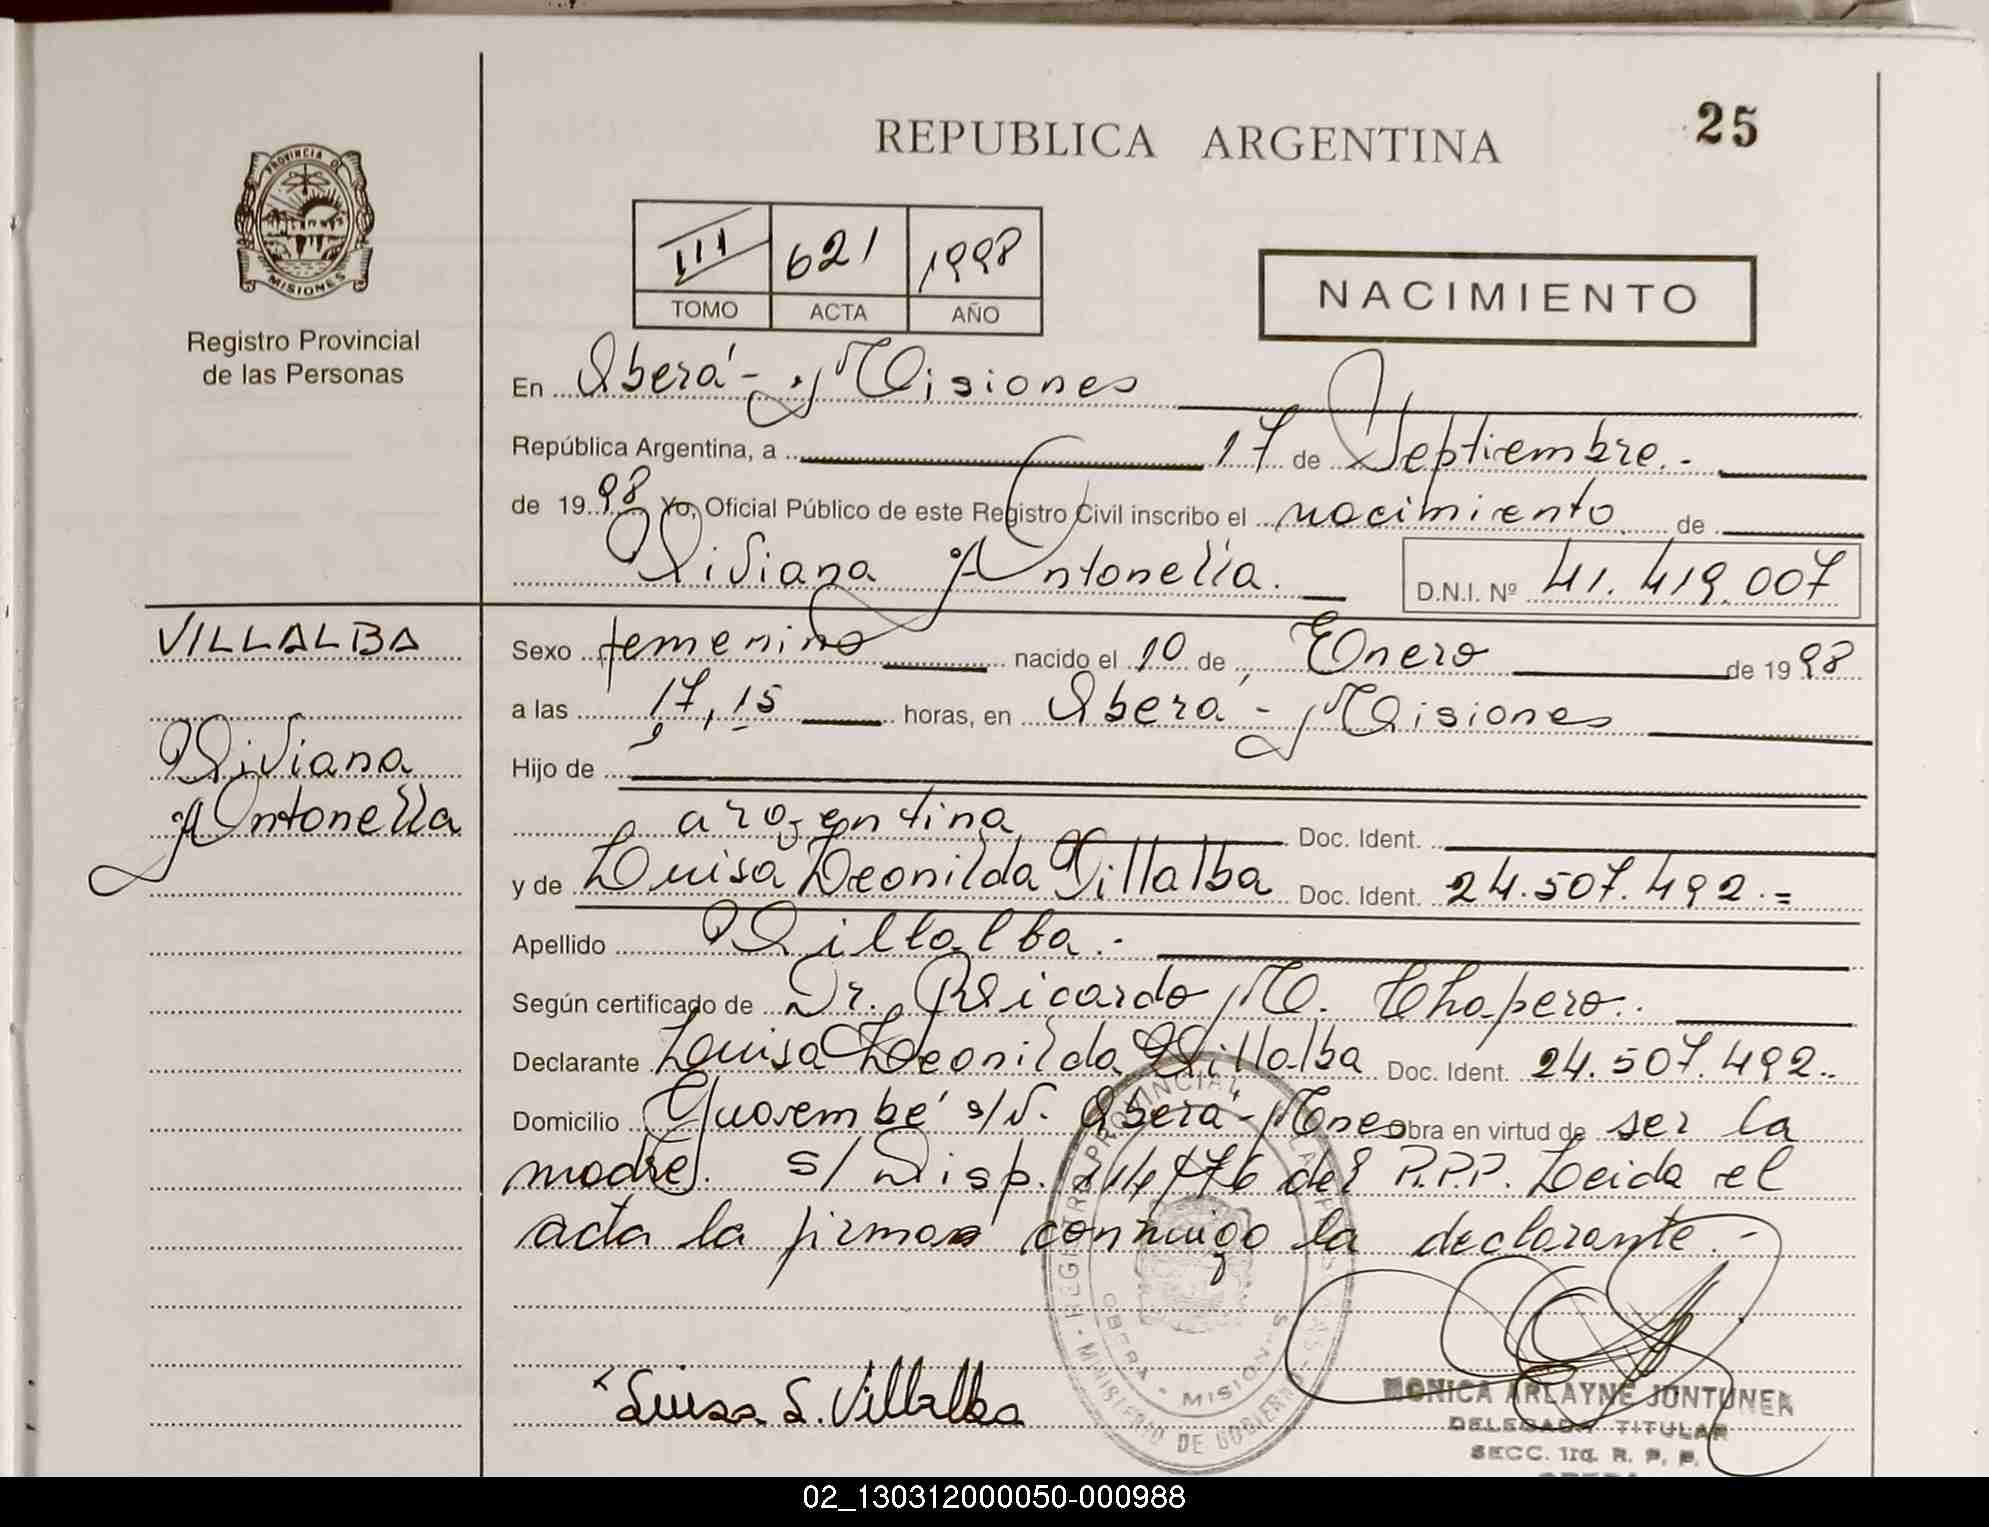 25
REPUBLICA ARGENTINA
PROVINCIA DE
MISIONES
Registro Provincial
de las Personas
III 621 1998
TOMO ACTA AÑO
NACIMIENTO
En Oberá - Misiones
República Argentina, a 17 de Septiembre.-
de 1998 Yo, Oficial Público de este Registro Civil inscribo el nacimiento de
Viviana Antonella. D.N.I. Nº 41.419.007
VILLALBA
Viviana
Antonella
Sexo femenino nacido el 10 de Enero de 1998
a las 17,15 horas, en Oberá - Misiones
Hijo de
argentina Doc. Ident.
y de Luisa Leonilda Villalba Doc. Ident. 24.507.492.=
Apellido Villalba.-
Según certificado de Dr. Ricardo M. Chapero.
Declarante Luisa Leonilda Villalba Doc. Ident. 24.507.492.
Domicilio Guarembé s/N. Oberá - Mnes obra en virtud de ser la
madre. s/ Disp. 214/76 del R.P.P. Leida el
acta la firma conmigo la declarante.-
REGISTRO PROVINCIAL DE LAS PERSONAS - MINISTERIO DE GOBIERNO
OBERA - MISIONES
Luisa L. Villalba
MONICA ARLAYNE JUNTUNEN
DELEGADA TITULAR
SECC. 1ra. R. P. P.
02_130312000050-000988